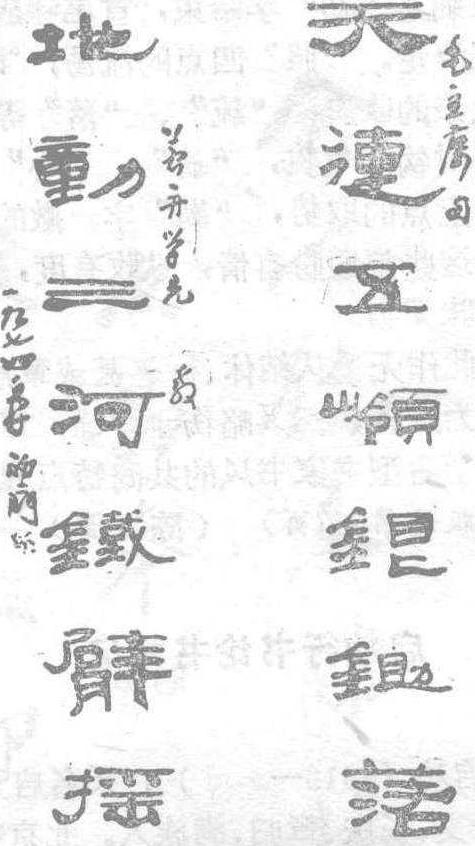 毛主席句
天連五嶺銀鋤落
舟学兄
教
地動三河鐵臂搖
一九七四年